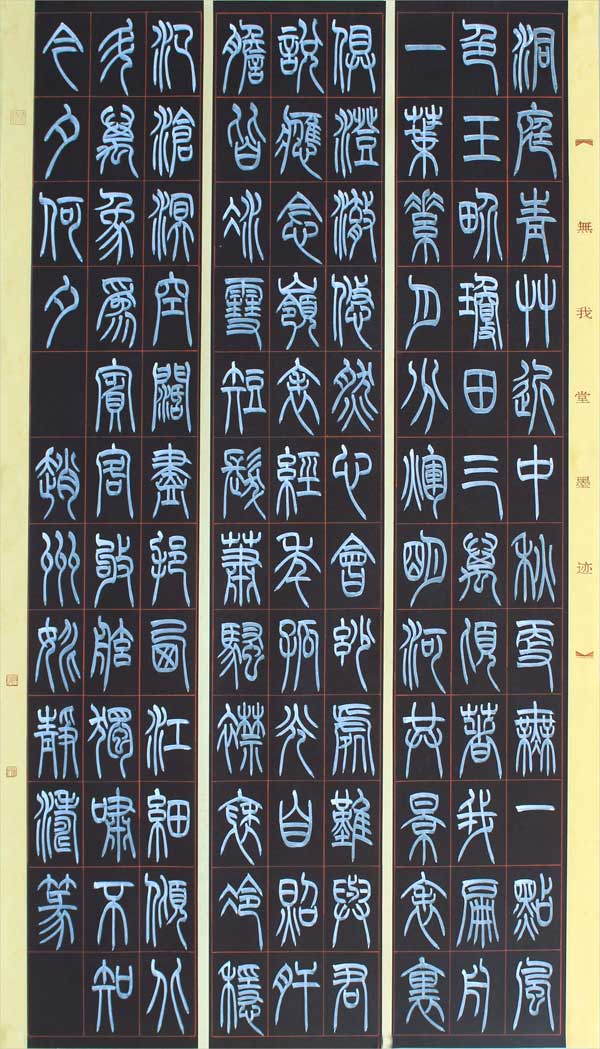 【無我堂墨迹】
洞庭青艸近中秋更無一點風
色玉界瓊田三萬頃著我扁舟
一葉素月分輝明河共景表裏
俱澄澈悠然心會妙處難與君
說應念嶺表經年孤光自照肝
膽皆冰雪短髮蕭騷襟袖冷穩
汎滄溟空闊盡挹西江細傾北
斗萬象為賓客敂舷獨嘯不知
今夕何夕 趙州姚靜濤篆